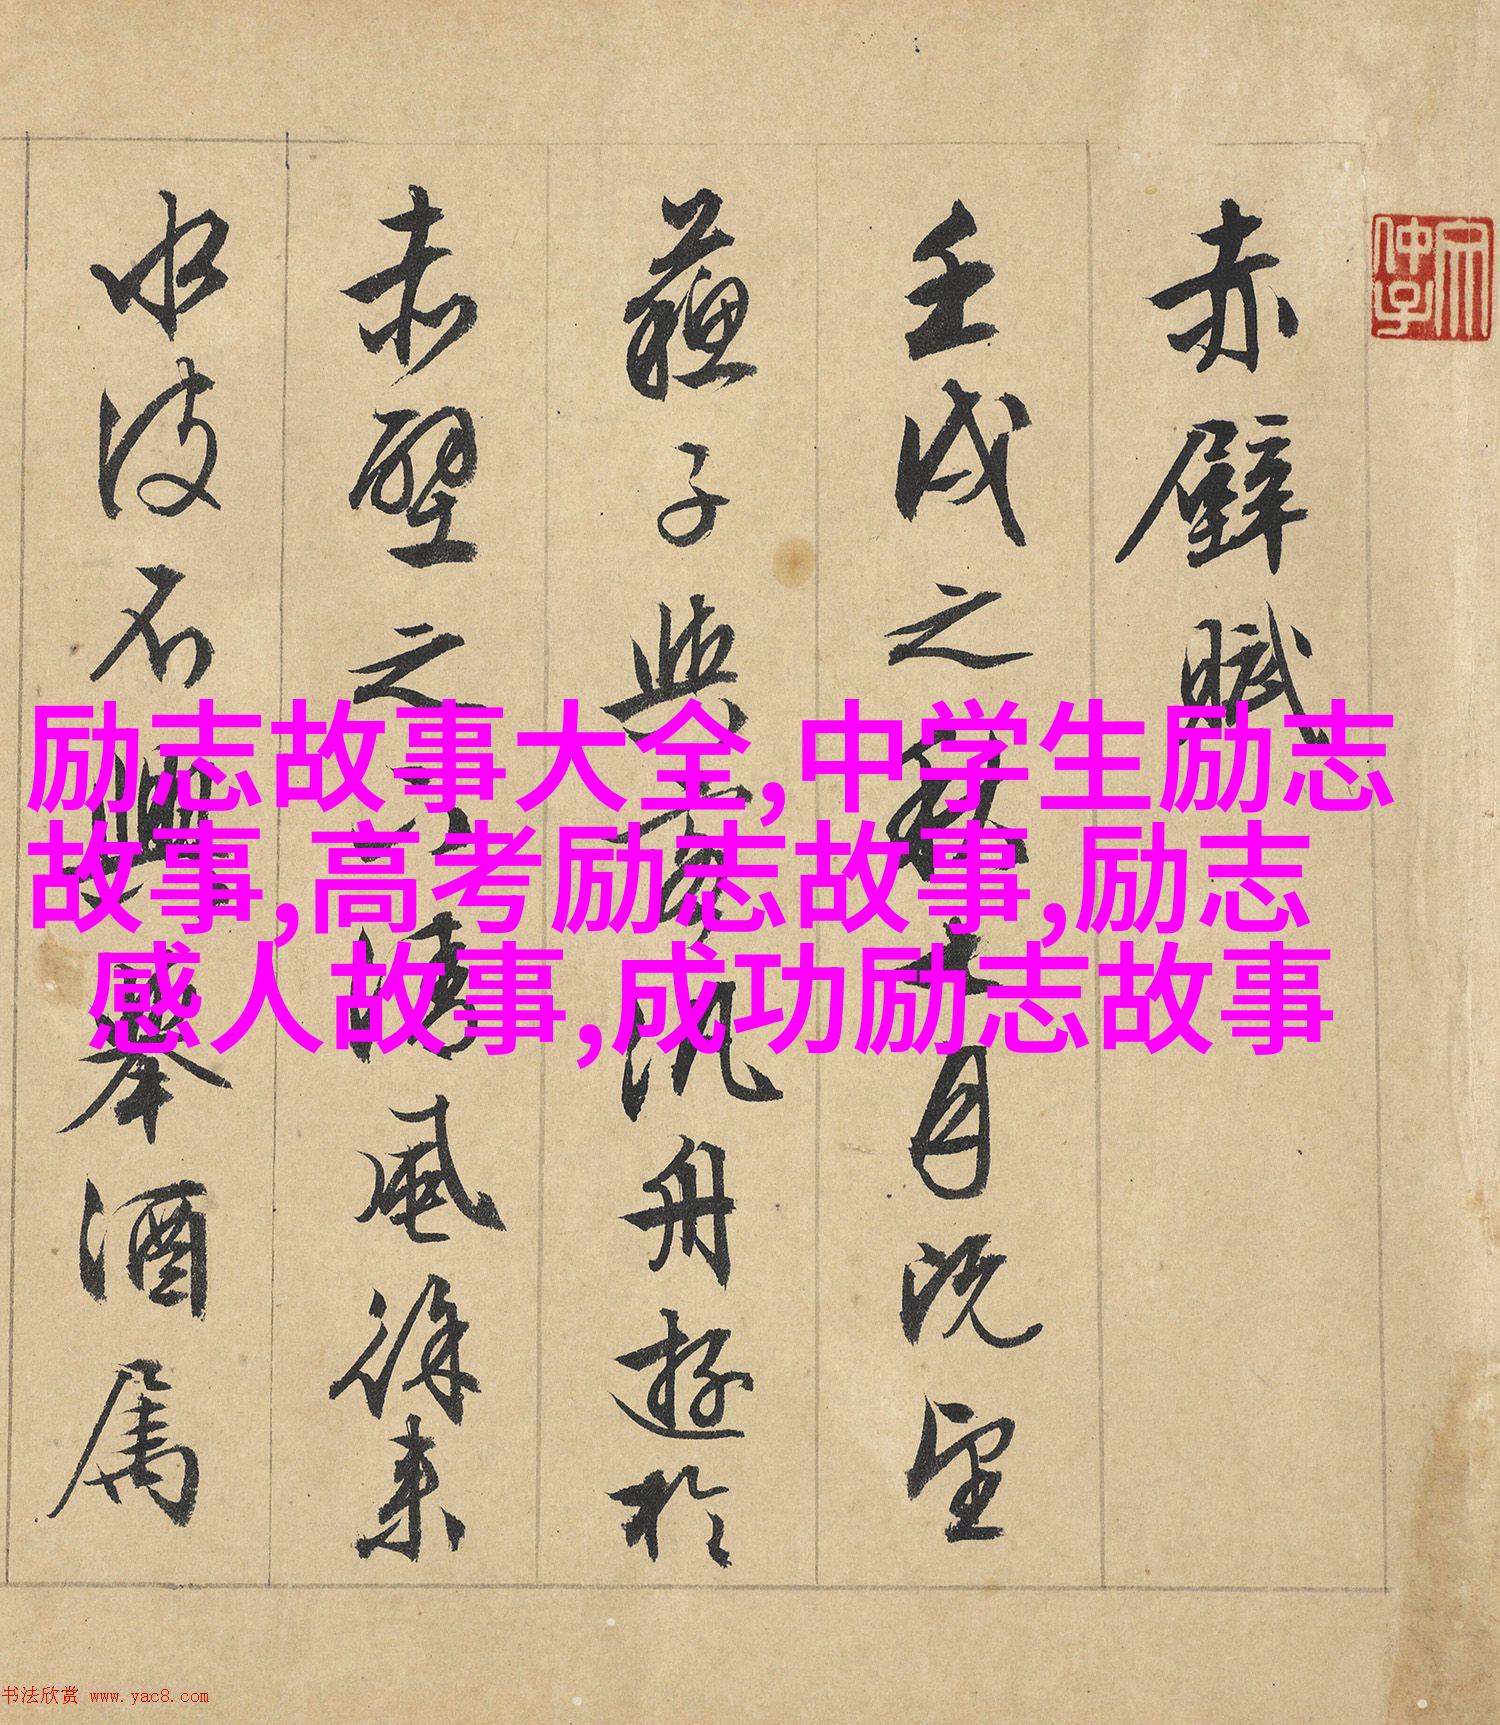 赤壁賦
壬戌之秋七月既望
蘇子與客汎舟遊於
赤壁之下清風徐来
水波不興舉酒属
励志故事大全,中学生励志
故事,高考励志故事,励志
感人故事,成功励志故事
书法欣赏 www.yac8.com